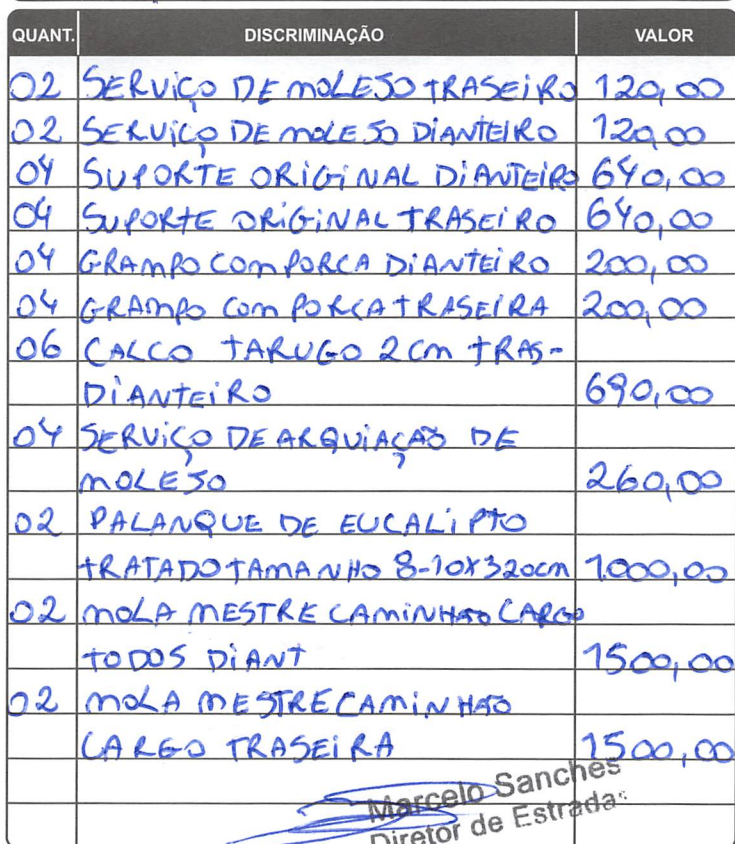 QUANT. DISCRIMINAÇÃO VALOR
02 SERVIÇO DE MOLEJO TRASEIRO 120,00
02 SERVIÇO DE MOLEJO DIANTEIRO 120,00
04 SUPORTE ORIGINAL DIANTEIRO 640,00
04 SUPORTE ORIGINAL TRASEIRO 640,00
04 GRAMPO COM PORCA DIANTEIRO 200,00
04 GRAMPO COM PORCA TRASEIRA 200,00
06 CALCO TARUGO 2 CM TRAS-
DIANTEIRO 690,00
04 SERVIÇO DE ARQUIAÇAÕ DE
MOLEJO 260,00
02 PALANQUE DE EUCALIPTO
TRATADO TAMANHO 8-10X320cm 1.000,00
02 MOLA MESTRE CAMINHÃO CARGO
TODOS DIANT 1500,00
02 MOLA MESTRE CAMINHÃO
CARGO TRASEIRA 1500,00
Marcelo Sanches
Diretor de Estradas